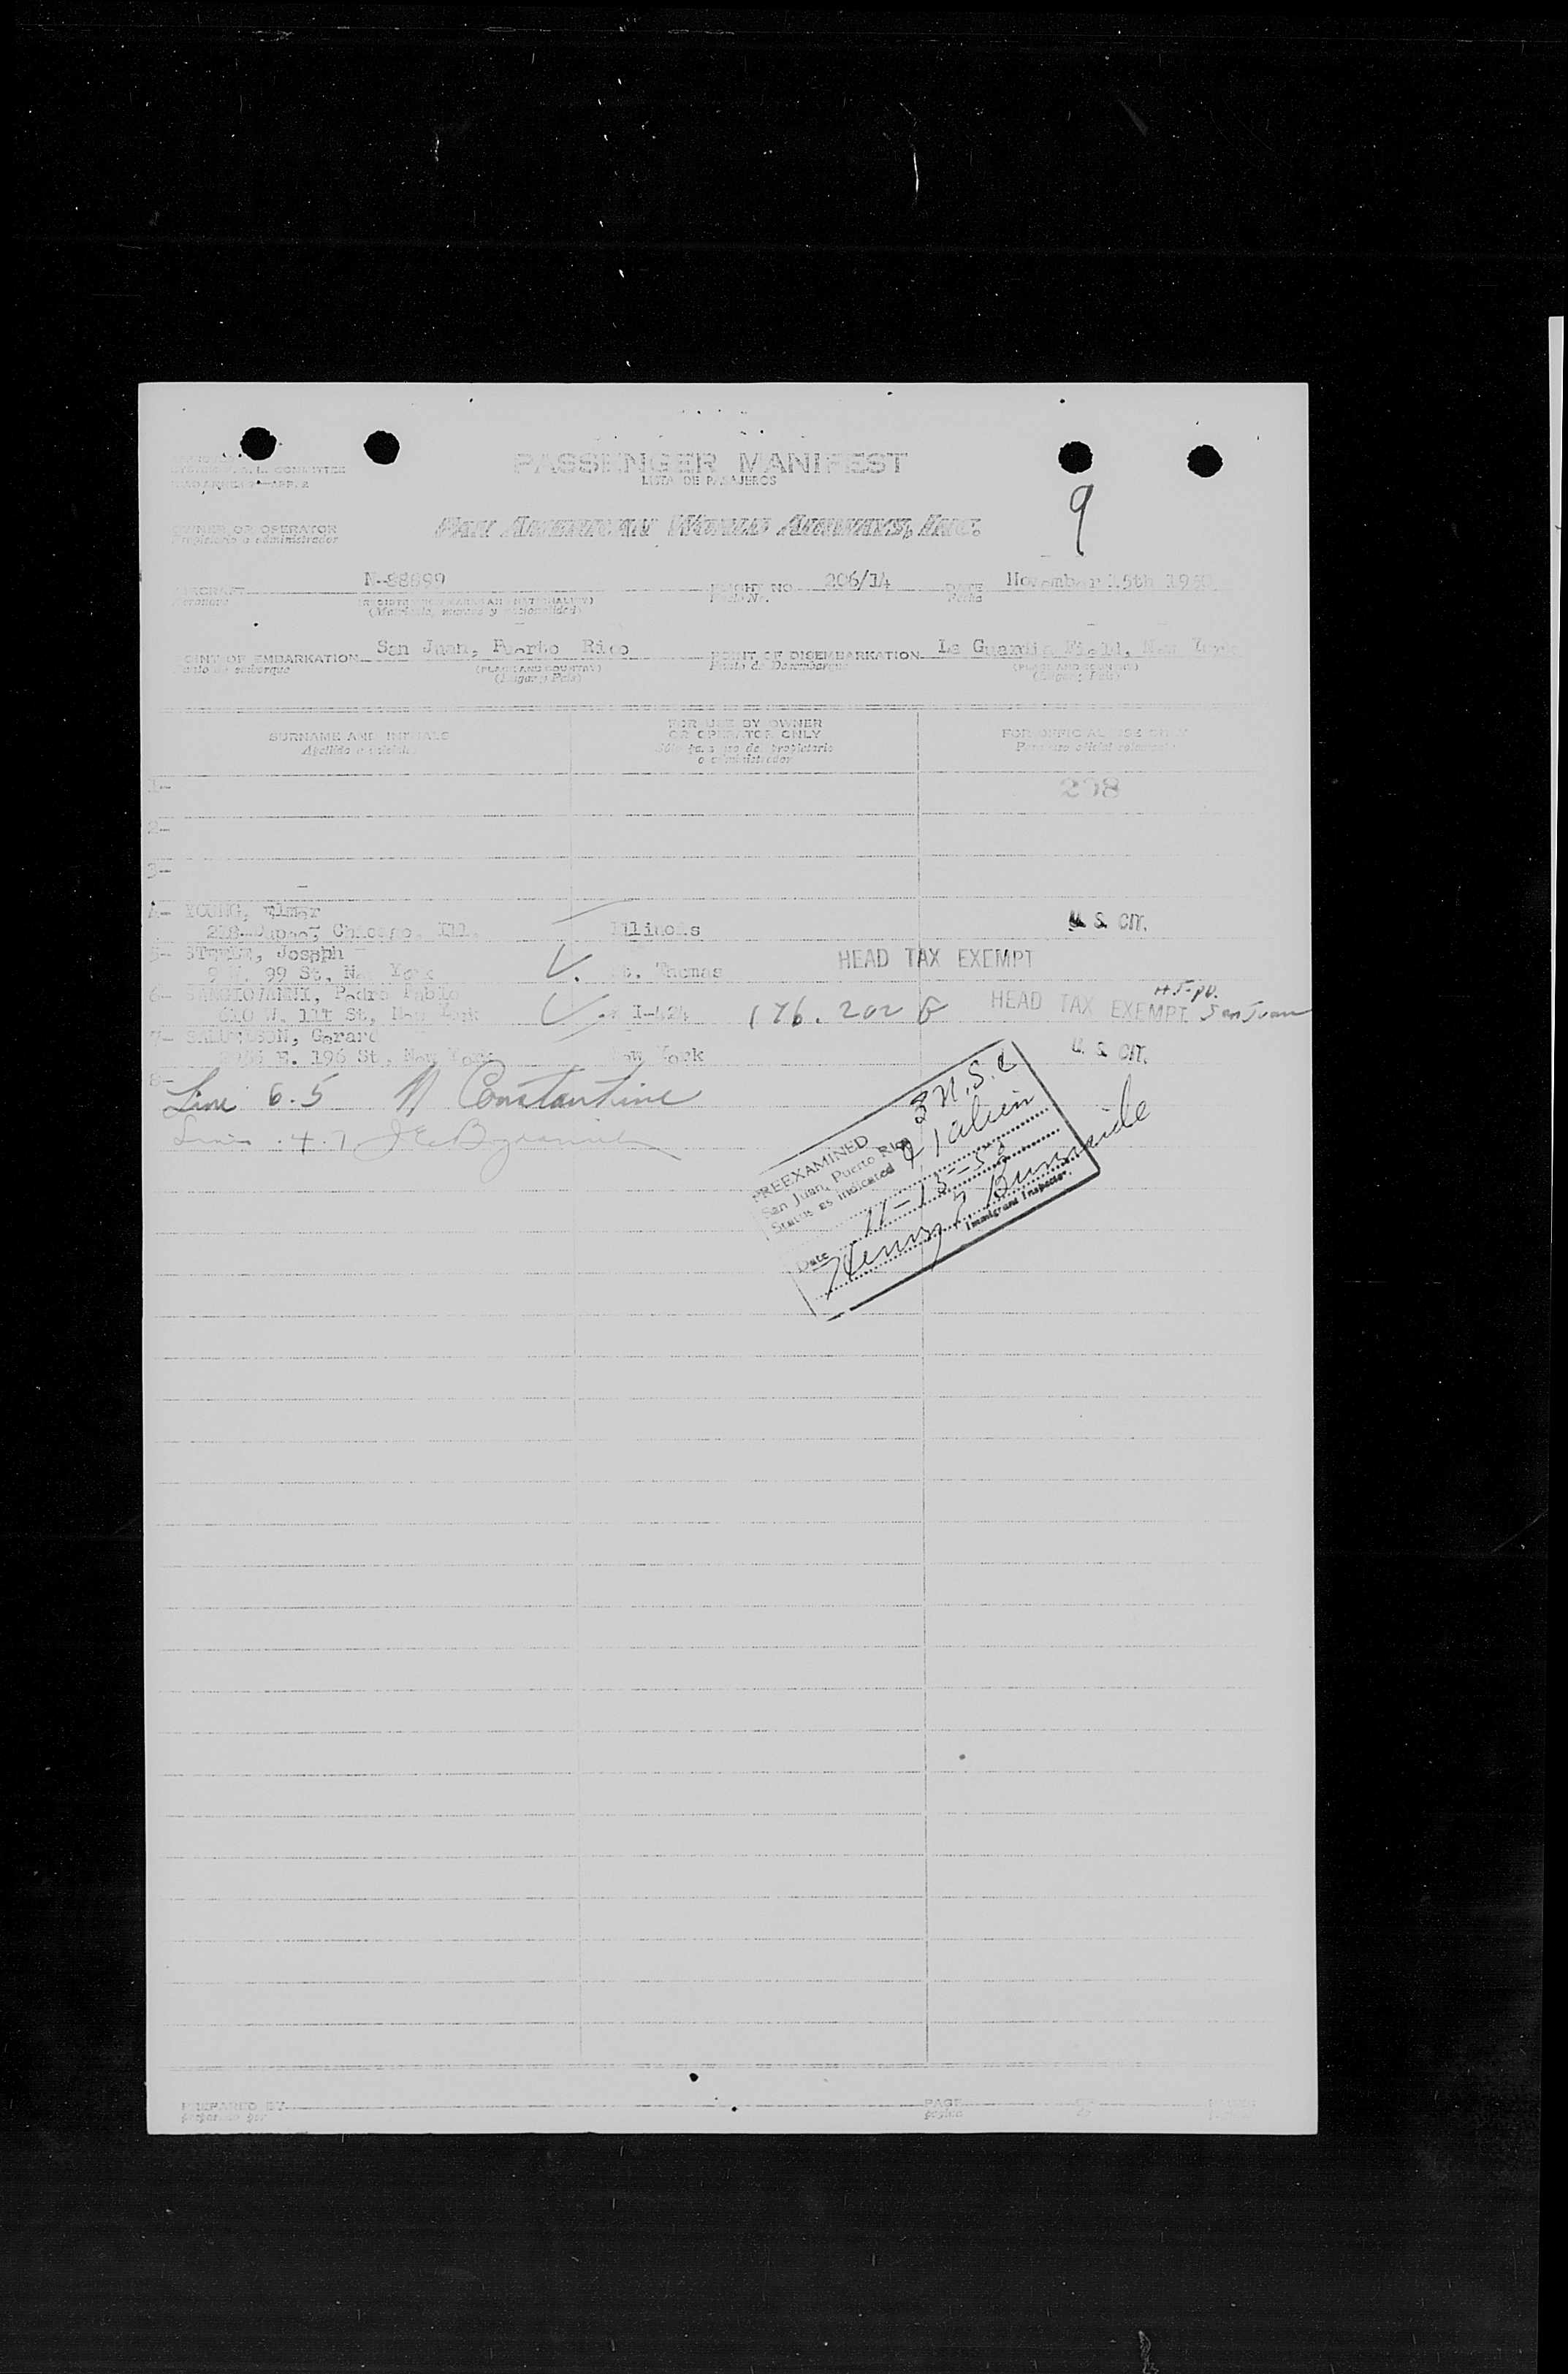 PASSENGER MANIFEST
LISTA DE PASAJEROS
9
OWNER OR OPERATOR
Propietario o administrador
PAN AMERICAN WORLD AIRWAYS, INC.
AIRCRAFT N-88899 FLIGHT NO. 206/14 DATE November 15th 1950
Aeronave (Matrícula, marcas y nacionalidad) Fecha
POINT OF EMBARKATION San Juan, Puerto Rico POINT OF DISEMBARKATION La Guardia Field, New York
Punto de embarque (PLACE AND COUNTRY) Punto de Desembarque (PLACE AND COUNTRY)
(Lugar y País) (Lugar y País)
SURNAME AND INITIALS
Apellido e iniciales
FOR USE BY OWNER
OR OPERATOR ONLY
Sólo para uso del propietario
o administrador
FOR OFFICIAL USE ONLY
Para uso oficial solamente
1- 208
2-
3-
4- YOUNG, Elmer
Chicago, Ill. Illinois U. S. CIT.
5- Joseph
99 St, New York St. Thomas HEAD TAX EXEMPT
6- SANGIOVANNI, Pedro Pablo
610 W. 11t St, New York I-424 176.202 HEAD TAX EXEMPT H.T. pd. San Juan
7- Gerard
E. 196 St, New York New York U. S. CIT.
8-
Line 6.5 N Constantine
4.7
PREEXAMINED
San Juan, Puerto Rico 3 U.S.C
Status as indicated & 1 alien
Date 11-15-50
Henry Burnside
Immigrant Inspector.
PREPARED BY
preparado por
PAGE
página